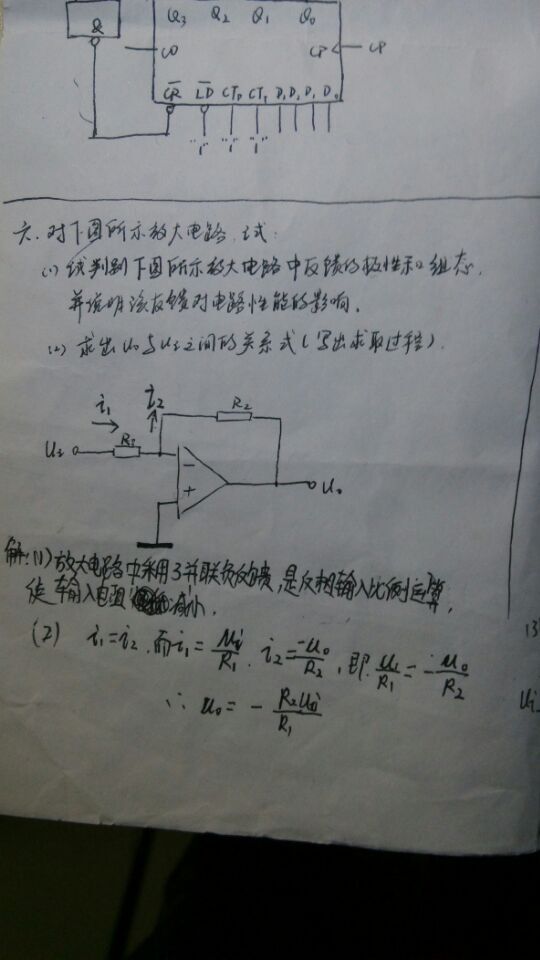 & Q3 Q2 Q1 Q0
CO CP CP
CR LD CTp CTT D3 D2 D1 D0
"1" "1" "1"
六.对下图所示放大电路,试:
(1) 试判别下图所示放大电路中反馈的极性和组态,
并说明该反馈对电路性能的影响.
(2) 求出 Uo与Ui之间的关系式(写出求取过程).
i1 i2 R2
Ui R1 - +
Uo
解:(1)放大电路中采用了并联负反馈,是反相输入比例运算,
使输入电阻减小.
(2) i1=i2.而i1=Ui/R1. i2=-Uo/R2,即Ui/R1=-Uo/R2
∴ Uo=-R2Ui/R1
13
Ui